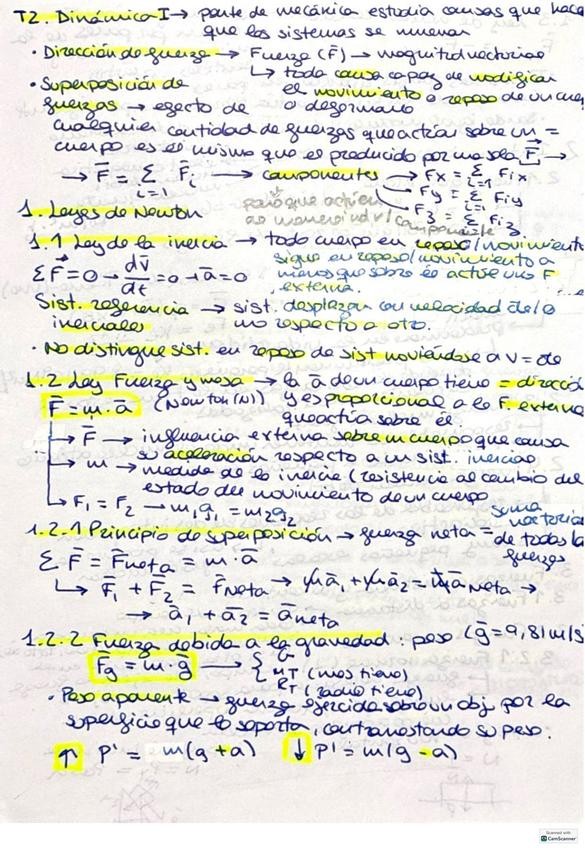 T2. Dinámica I → parte de mecánica estudia causas que hace
que los sistemas se muevan
• Dirección de fuerza → Fuerza (F̄) → magnitud vectorial
↳ toda causa capaz de modificar
el movimiento o reposo de un cuerpo
o deformarlo
• Superposición de
fuerzas → efecto de
cualquier cantidad de fuerzas que actúan sobre un =
cuerpo es el mismo que el producido por una sola F̄ →
→ F̄ = Σ F̄i → componentes → Fx = Σ Fix
i=1
Fy = Σ Fiy
F3 = Σ Fi3
para que actúen
componente
1. Leyes de Newton
1.1 Ley de la inercia → todo cuerpo en reposo/movimiento
sigue en reposo/movimiento a
menos que sobre él actúe una F
externa.
ΣF̄ = 0 → dv̄/dt = 0 → ā = 0
Sist. referencia → sist. desplazan con velocidad
inerciales
respecto a otro.
• No distingue sist. en reposo de sist moviéndose a v = cte
1.2 Ley Fuerza y masa → la ā de un cuerpo tiene = direcció
F̄ = m · ā (Newton (N)) y es proporcional a la F. externa
que actúa sobre él
→ F̄ → influencia externa sobre un cuerpo que causa
su aceleración respecto a un sist. inercial
→ m → medida de la inercia (resistencia al cambio del
estado del movimiento de un cuerpo
→ F1 = F2 → m1g1 = m2g2
1.2.1 Principio de superposición → fuerza neta = suma
vectorial
de todas la
fuerzas
Σ F̄ = F̄neta = m · ā
↳ F̄1 + F̄2 = F̄neta → mā1 + mā2 = māneta →
→ ā1 + ā2 = āneta
1.2.2 Fuerza debida a la gravedad: peso (ḡ = 9,81 m/s
F̄g = m · ḡ → { G
MT (mas tierra)
RT (radio tierra)
• Peso aparente → fuerza ejercida sobre un obj. por la
superficie que lo soporta, contrarrestando su peso.
↑ P' = m(g + a) ↓ P' = m(g - a)
Scanned with
CamScanner